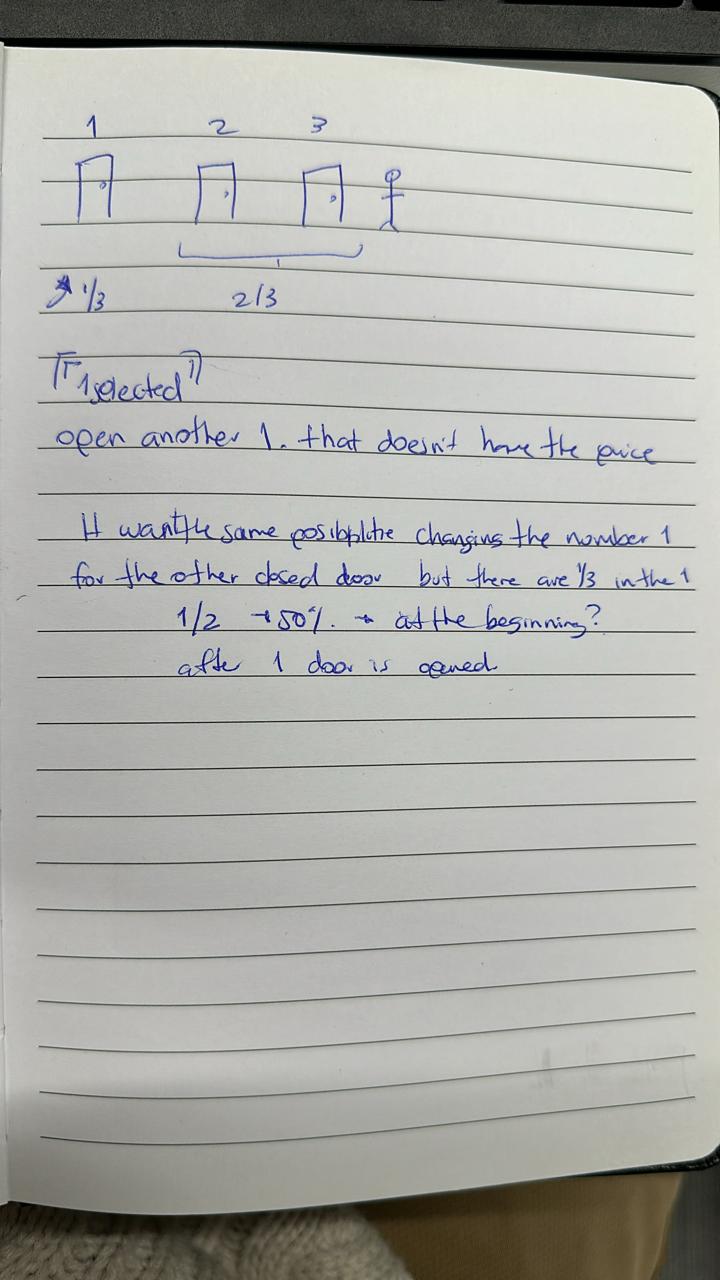 1 2 3
1/3 2/3
1 selected
open another 1. that doesn't have the price
It want the same posibplitie changing the number 1
for the other closed door but there are 1/3 in the 1
1/2 → 50% → at the beginning?
after 1 door is opened